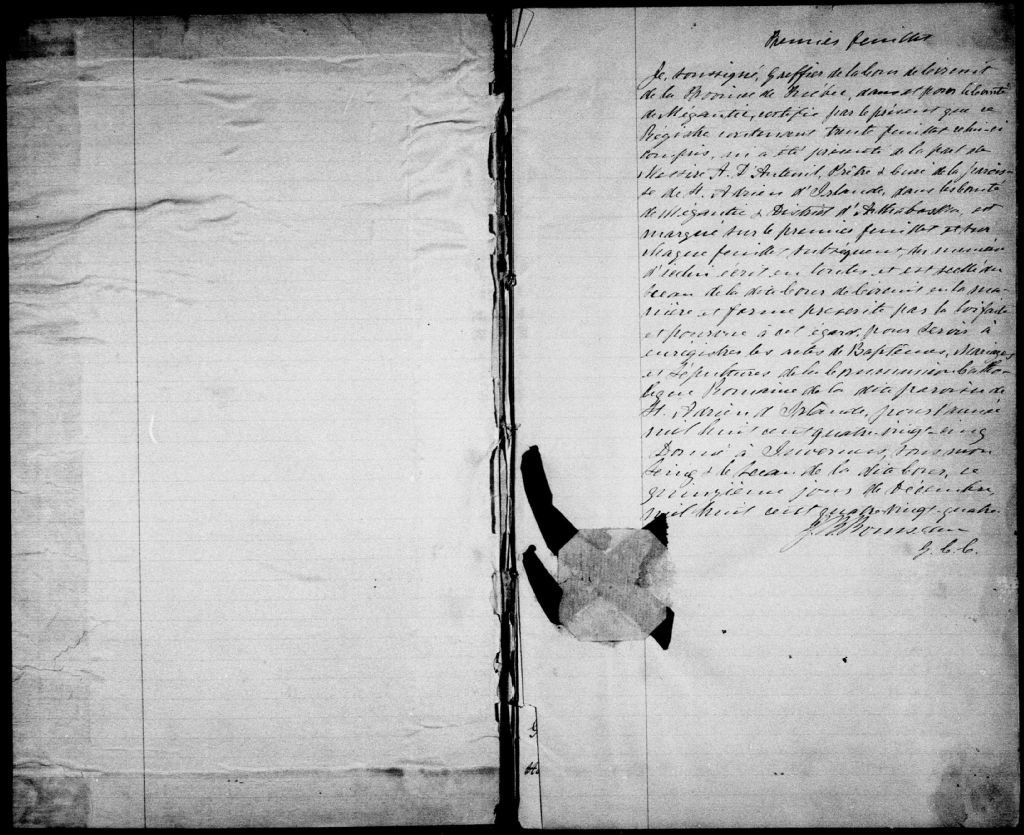 Premier feuillet
Je, soussigné, Greffier de la Cour de Circuit
de la Province de Québec, dans et pour le Comté
de Mégantic, certifie par le présent que ce
Régistre contenant trente feuillets celui-ci
compris, m'a été présenté de la part de
Messire A. D'Auteuil, Prêtre & Curé de la parois-
se de St. Adrien d'Irlande, dans le Comté
de Mégantic & District d'Arthabaska, est
marqué sur le premier feuillet et sur
chaque feuillet subséquent, du numéro
d'icelui écrit en toutes et est scellé du
Sceau de la dite Cour de Circuit en la ma-
nière et forme prescrite par la loi faite
et pourvue à cet égard, pour servir à
enregistrer les actes de Baptêmes, Mariages
et Sépultures de la Communion Catho-
lique Romaine de la dite paroisse de
St. Adrien d'Irlande, pour l'année
mil huit cent quatre-vingt-cinq
Donné à Inverness, sous mon
Seing & le Sceau de la dite Cour, ce
quinzième jour de Décembre
mil huit cent quatre-vingt-quatre
G. C. C.